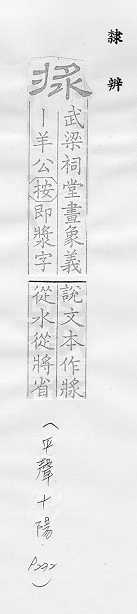 隸辨
漿
武梁祠堂畫象義
｜羊公按即漿字
說文本作㵄
從水從將省
(平聲十陽 P292)